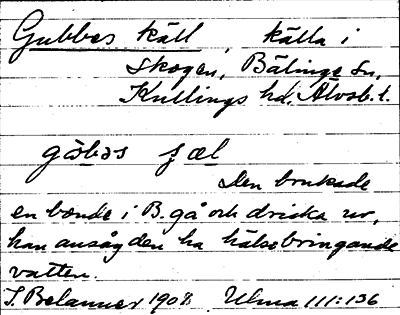 Gubbes käll, källa i
Skogen, Bälinge sn,
Kullings hd, Älvsb. l.
Den brukade
en bonde i B. gå och dricka ur,
han ansåg den ha hälsobringande
vatten.
1908 Ulma 111:136